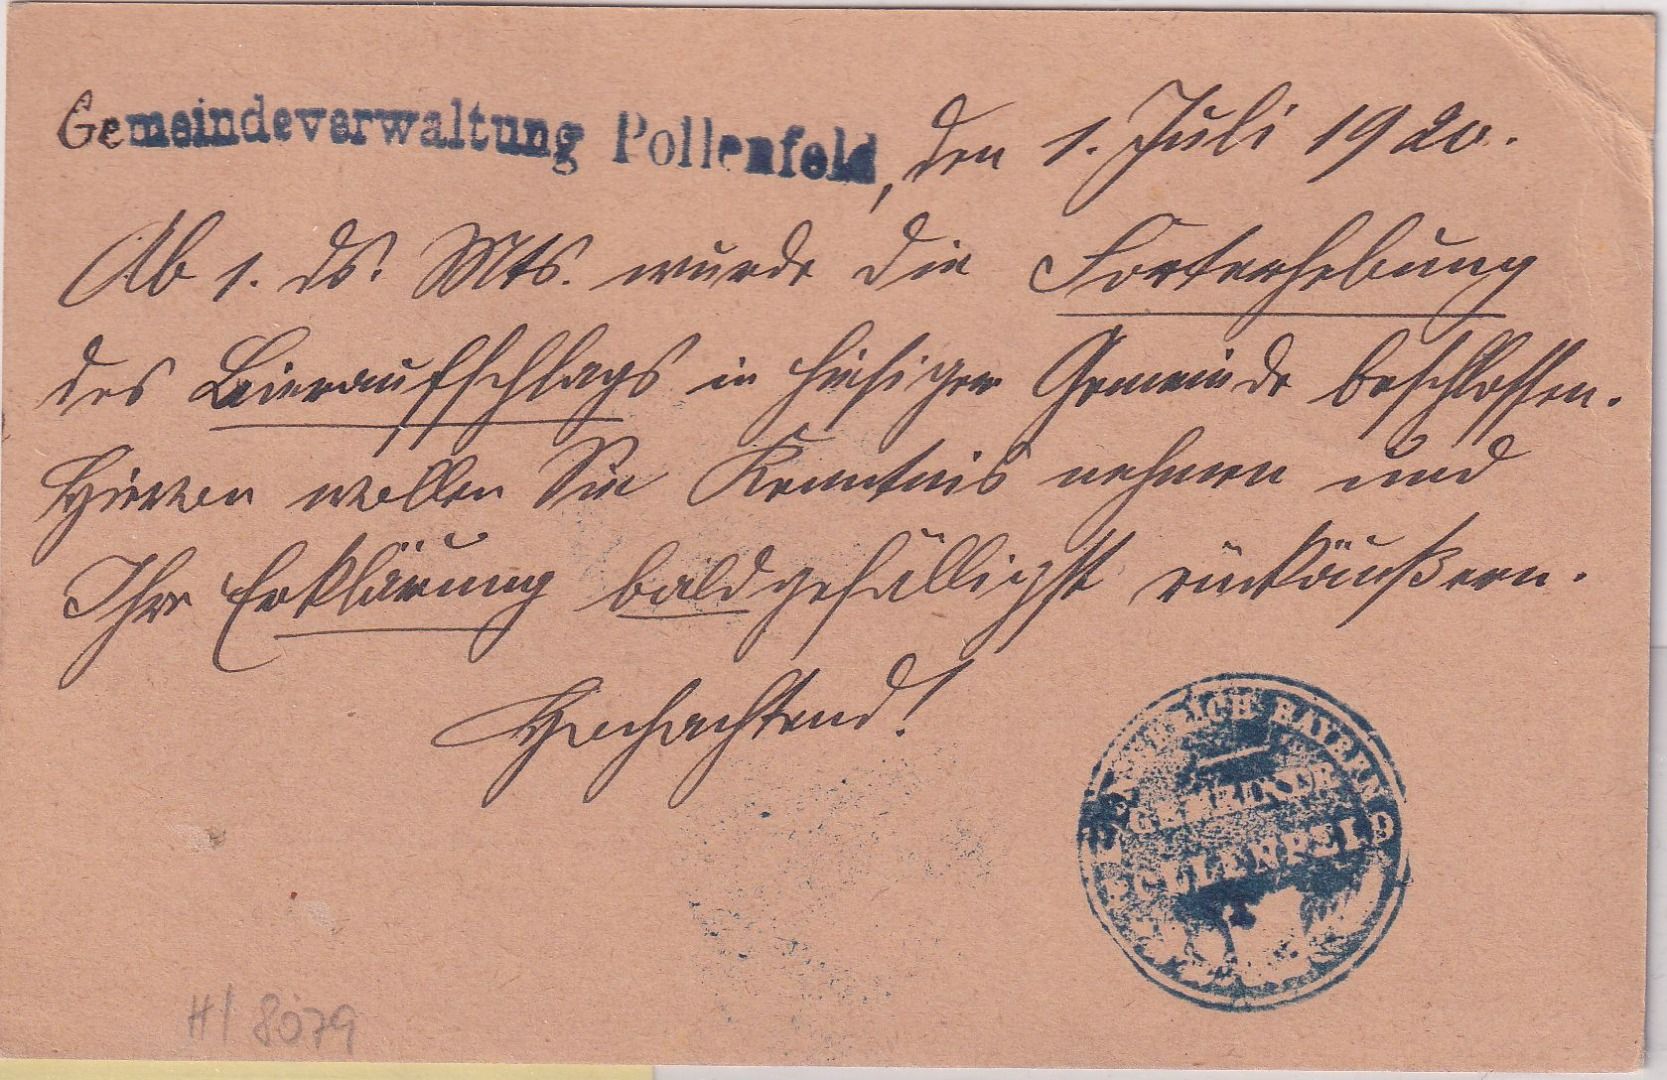 Gemeindeverwaltung Pollenfeld, den 1. Juli 1920.
Ab 1. ds. Mts. wurde die Forterhebung
des Bieraufschlags in hiesiger Gemeinde beschlossen.
Hievon wollen Sie Kenntnis nehmen und
Ihre Erklärung baldgefälligst rückäußern.
Hochachtend!
KÖNIGREICH BAYERN
GEMEINDE
POLLENFELD
H/ 8079